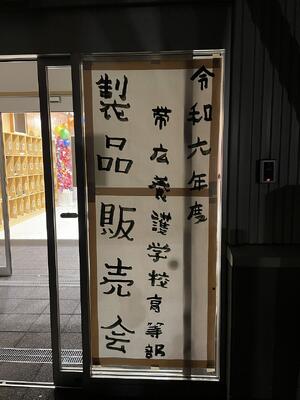 令和六年度
帯広養護学校高等部
製品販売会